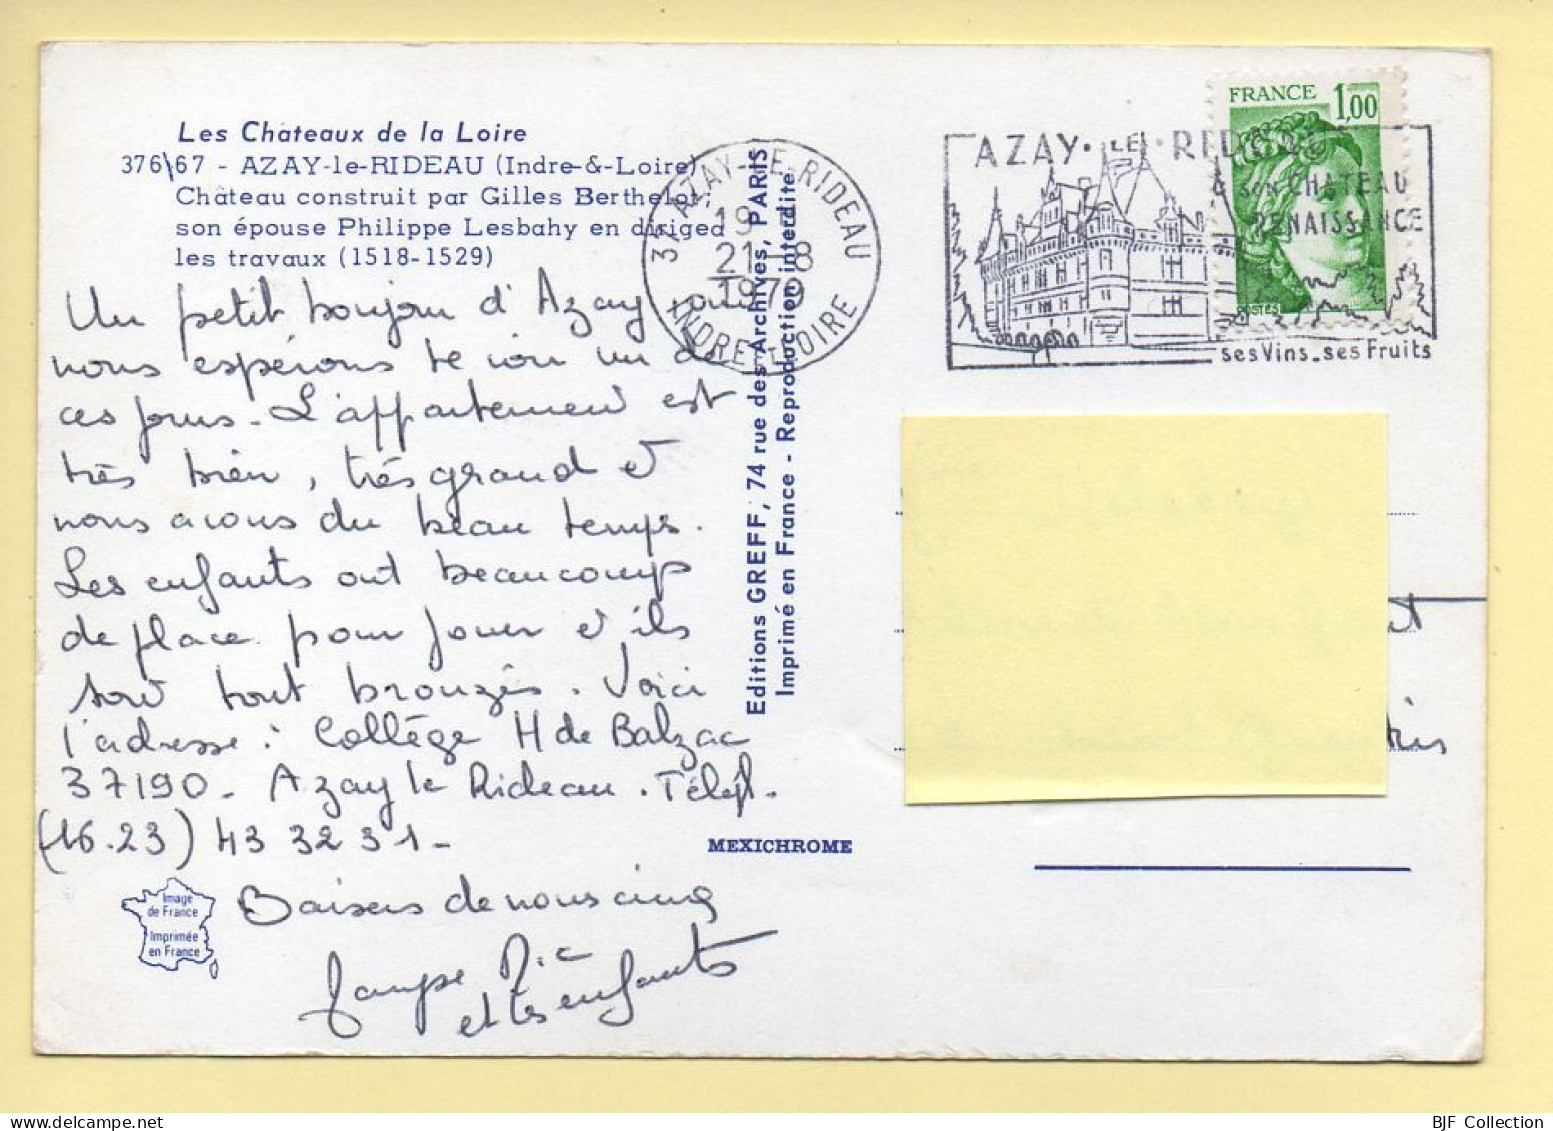 Les Châteaux de la Loire
376\67 - AZAY-le-RIDEAU (Indre-&-Loire)
Château construit par Gilles Berthelot;
son épouse Philippe Lesbahy en diriged
les travaux (1518-1529)
Un petit bonjour d'Azay où
nous espérons te voir un de
ces jours. L'appartement est
très bien, très grand et
nous avons du beau temps.
Les enfants ont beaucoup
de place pour jouer et ils
sont tout bronzés. Voici
l'adresse : Collège H de Balzac
37190 - Azay le Rideau. Téléph.
(16.23) 43 32 31 -
Baisers de nous cinq
et les enfants
Image
de France
Imprimée
en France
MEXICHROME
Editions GREFF, 74 rue des Archives, PARIS
Imprimé en France - Reproduction interdite
37 AZAY-LE-RIDEAU
19
21-8
1979
INDRE ET LOIRE
AZAY·LE·RIDEAU
& son CHATEAU
RENAISSANCE
ses Vins_ses Fruits
FRANCE 1,00
POSTES
BJF Collection